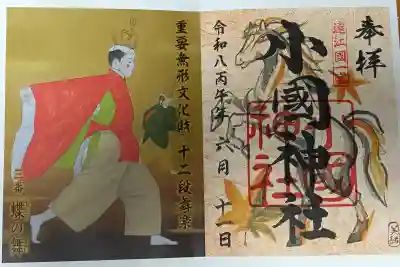 奉拝
遠江國一宮
小國神社
令和八丙午年 六月 十一日
重要無形文化財 十二段舞楽
三番 蝶の舞